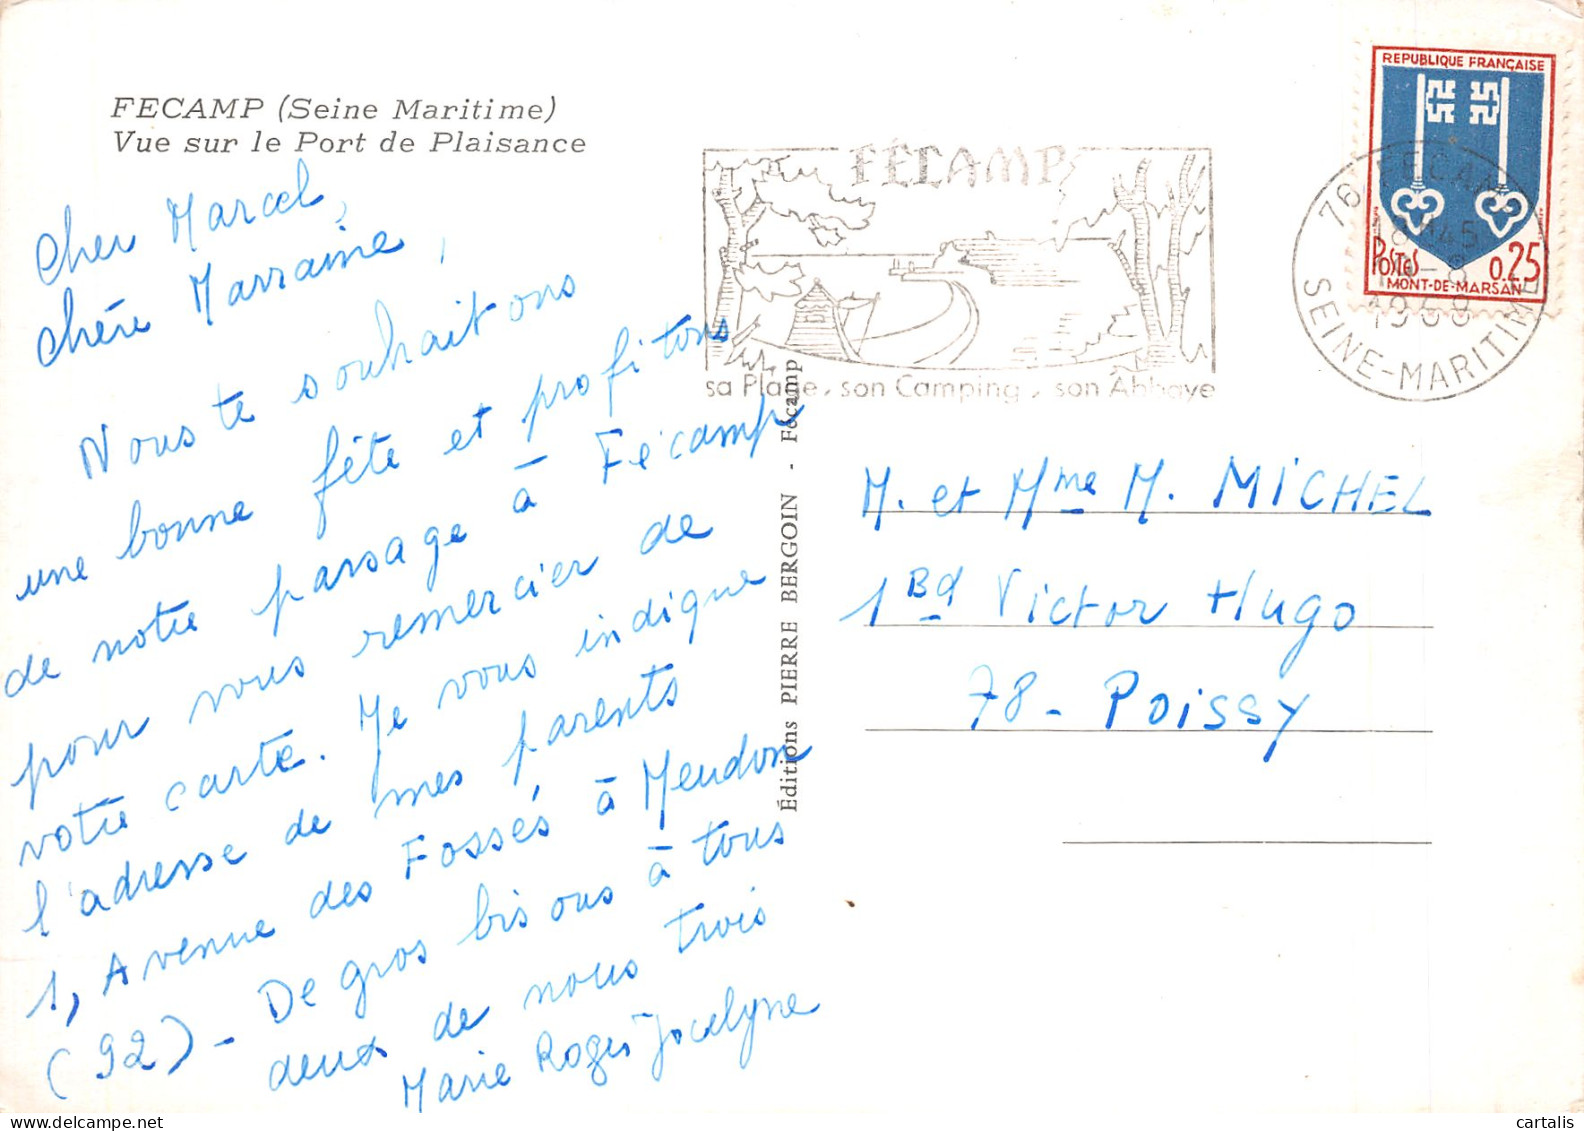 FECAMP (Seine Maritime)
Vue sur le Port de Plaisance
Cher Marcel,
Chère Marraine,
Nous te souhaitons
une bonne fête et profitons
de notre passage à Fécamp
pour vous remercier de
votre carte. Je vous indique
l'adresse de mes parents
1, Avenue des Fossés à Meudon
(92) - De gros bisous à tous
deux de nous trois
Marie Roger Jocelyne
Éditions PIERRE BERGOIN - Fécamp
FÉCAMP
sa Plage, son Camping, son Abbaye
REPUBLIQUE FRANÇAISE
POSTES 0.25
MONT-DE-MARSAN
76 FECAMP
18H45
1968
SEINE-MARITIME
M. et Mme M. MICHEL
1 Bd Victor Hugo
78 - Poissy
cartalis